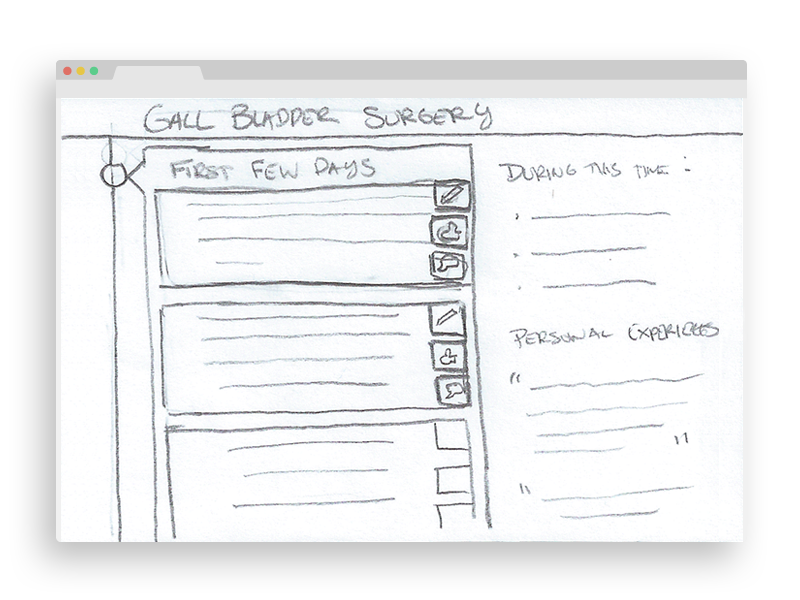 GALL BLADDER SURGERY
FIRST FEW DAYS
DURING THIS TIME :
PERSONAL EXPERICES
"
"
"